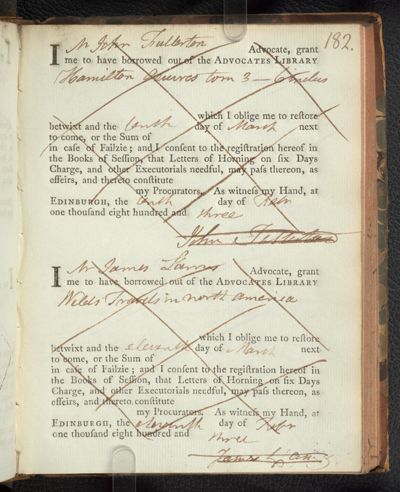 182.
I Mr John Fullerton Advocate, grant
me to have borrowed out of the ADVOCATES LIBRARY
Hamilton Œuvres tom 3 —
which I oblige me to reſtore
betwixt and the tenth day of March next
to come, or the Sum of
in caſe of Failzie; and I conſent to the regiſtration hereof in
the Books of Seſſion, that Letters of Horning on ſix Days
Charge, and other Executorials needful, may paſs thereon, as
effeirs, and thereto conſtitute
my Procurators. As witneſs my Hand, at
EDINBURGH, the tenth day of Febr
one thouſand eight hundred and three
John Fullerton
I Mr James Advocate, grant
me to have borrowed out of the ADVOCATES LIBRARY
Welds Travels in north america
which I oblige me to reſtore
betwixt and the eleventh day of March next
to come, or the Sum of
in caſe of Failzie; and I conſent to the regiſtration hereof in
the Books of Seſſion, that Letters of Horning on ſix Days
Charge, and other Executorials needful, may paſs thereon, as
effeirs, and thereto conſtitute
my Procurators. As witneſs my Hand, at
EDINBURGH, the eleventh day of Febr
one thouſand eight hundred and three
James